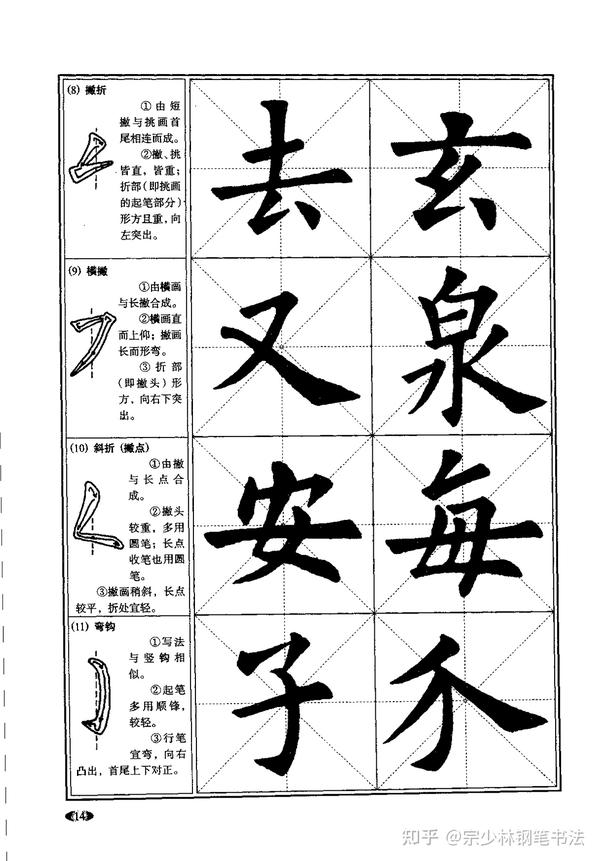 (8) 撇折
①由短
撇与挑画首
尾相连而成。
②撇、挑
皆直，皆重；
折部（即挑画
的起笔部分）
形方且重，向
左突出。
去 玄
(9) 横撇
①由横画
与长撇合成。
②横画直
而上仰；撇画
长而形弯。
③折部
（即撇头）形
方，向右下突
出。
又 泉
(10) 斜折（撇点）
①由撇
与长点合
成。
②撇头
较重，多用
圆笔；长点
收笔也用圆
笔。
③撇画稍斜，长点
较平，折处宜轻。
安 每
(11) 弯钩
①写法
与竖钩相
似。
②起笔
多用顺锋，
较轻。
③行笔
宜弯，向右
凸出，首尾上下对正。
子
14
知乎 @宗少林钢笔书法